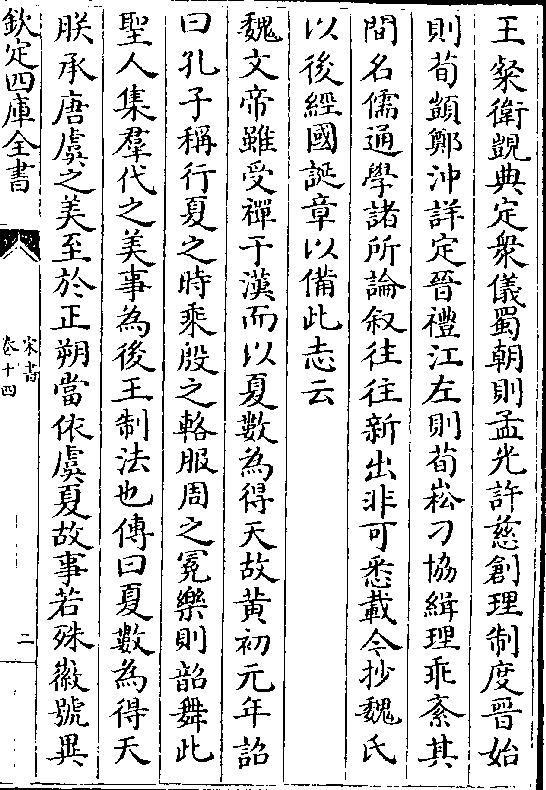 王粲衛覬典定衆儀蜀朝則孟光許慈創理制度晉始
則荀顗鄭沖詳定晉禮江左則荀崧刁協緝理乖紊其
間名儒通學諸所論叙往往新出非可悉載今抄魏氏
以後經國誕章以備此志云
魏文帝雖受禪于漢而以夏數為得天故黃初元年詔
曰孔子稱行夏之時乘殷之輅服周之冕樂則韶舞此
聖人集羣代之美事為後王制法也傳曰夏數為得天
朕承唐虞之美至於正朔當依虞夏故事若殊徽號異
欽定四庫全書
宋書
卷十四
二